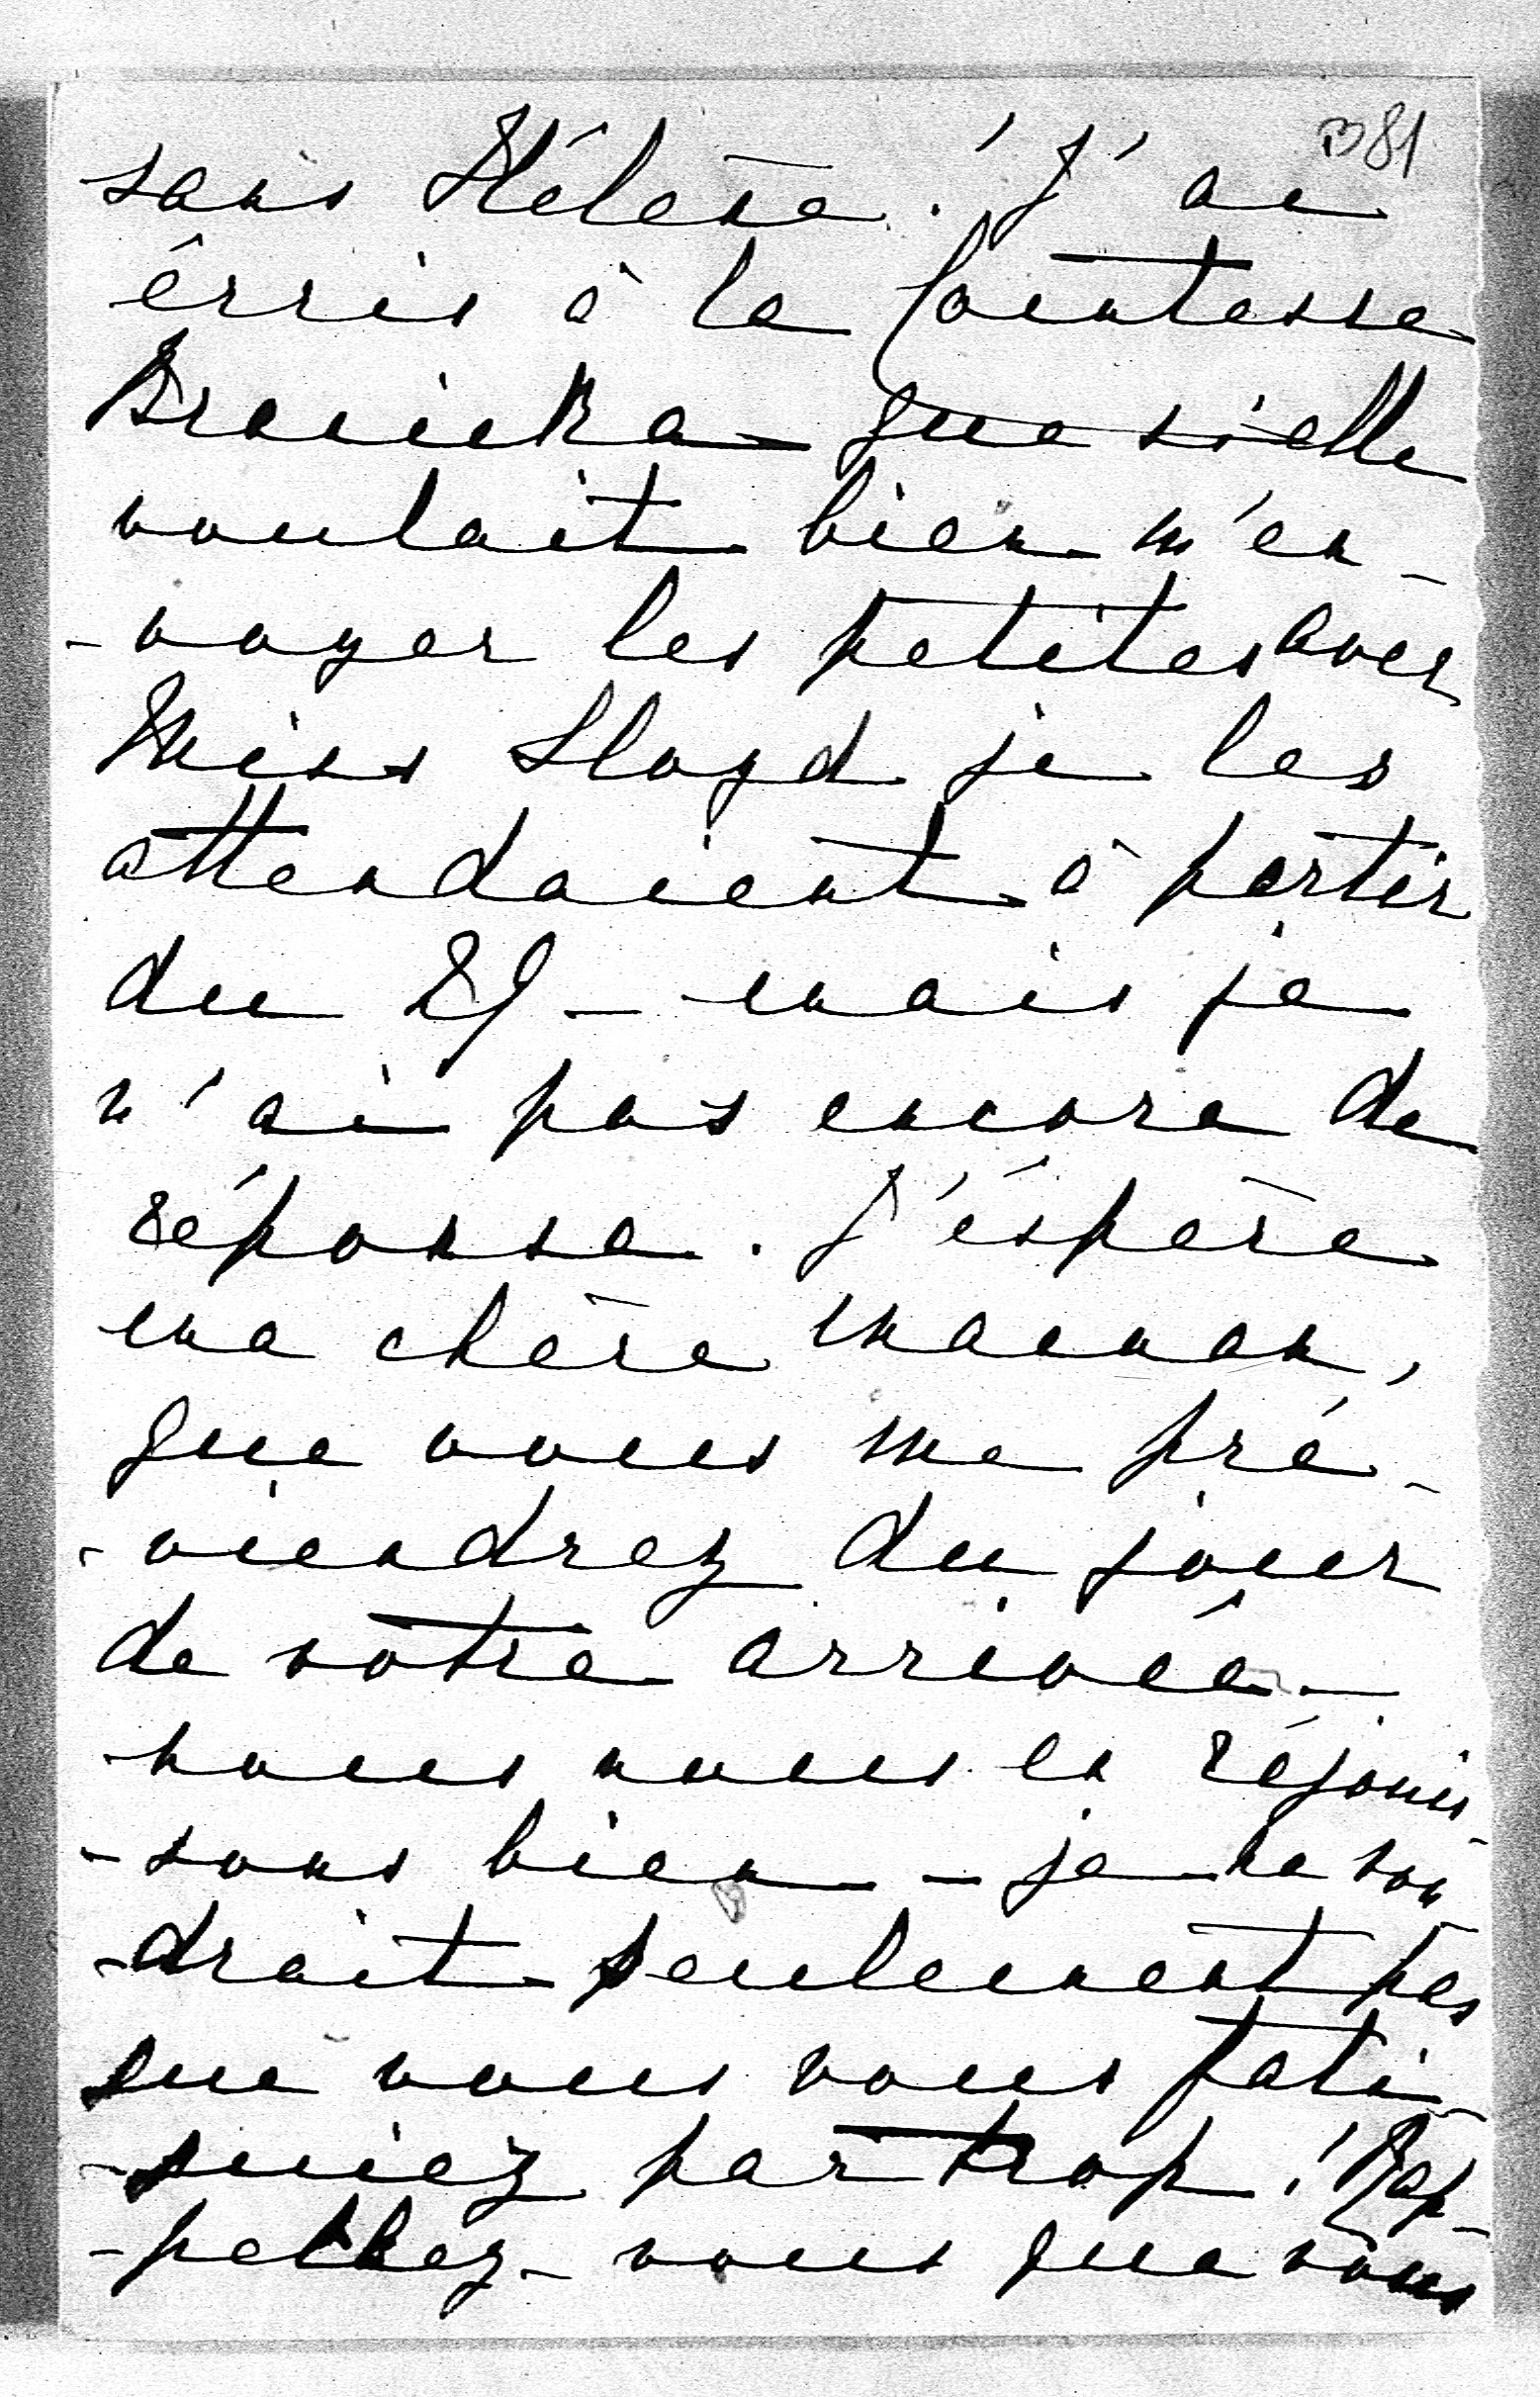 B 81
sans Hélène. J'ai
écris à la Comtesse
Branicka que si elle
voulait bien m'en-
-voyer les petites avec
Miss Lloyd je les
attendaient à partir
du 29 - mais je
n'ai pas encore de
réponse. J'éspère
ma chère maman,
que vous me pré-
-viendrez du jour
de votre arrivée -
nous nous en réjouis-
-sons bien - je ne vou-
-drait seulement pas
que vous vous fati-
-guiez par trop! Rap-
-pellez-vous que vous